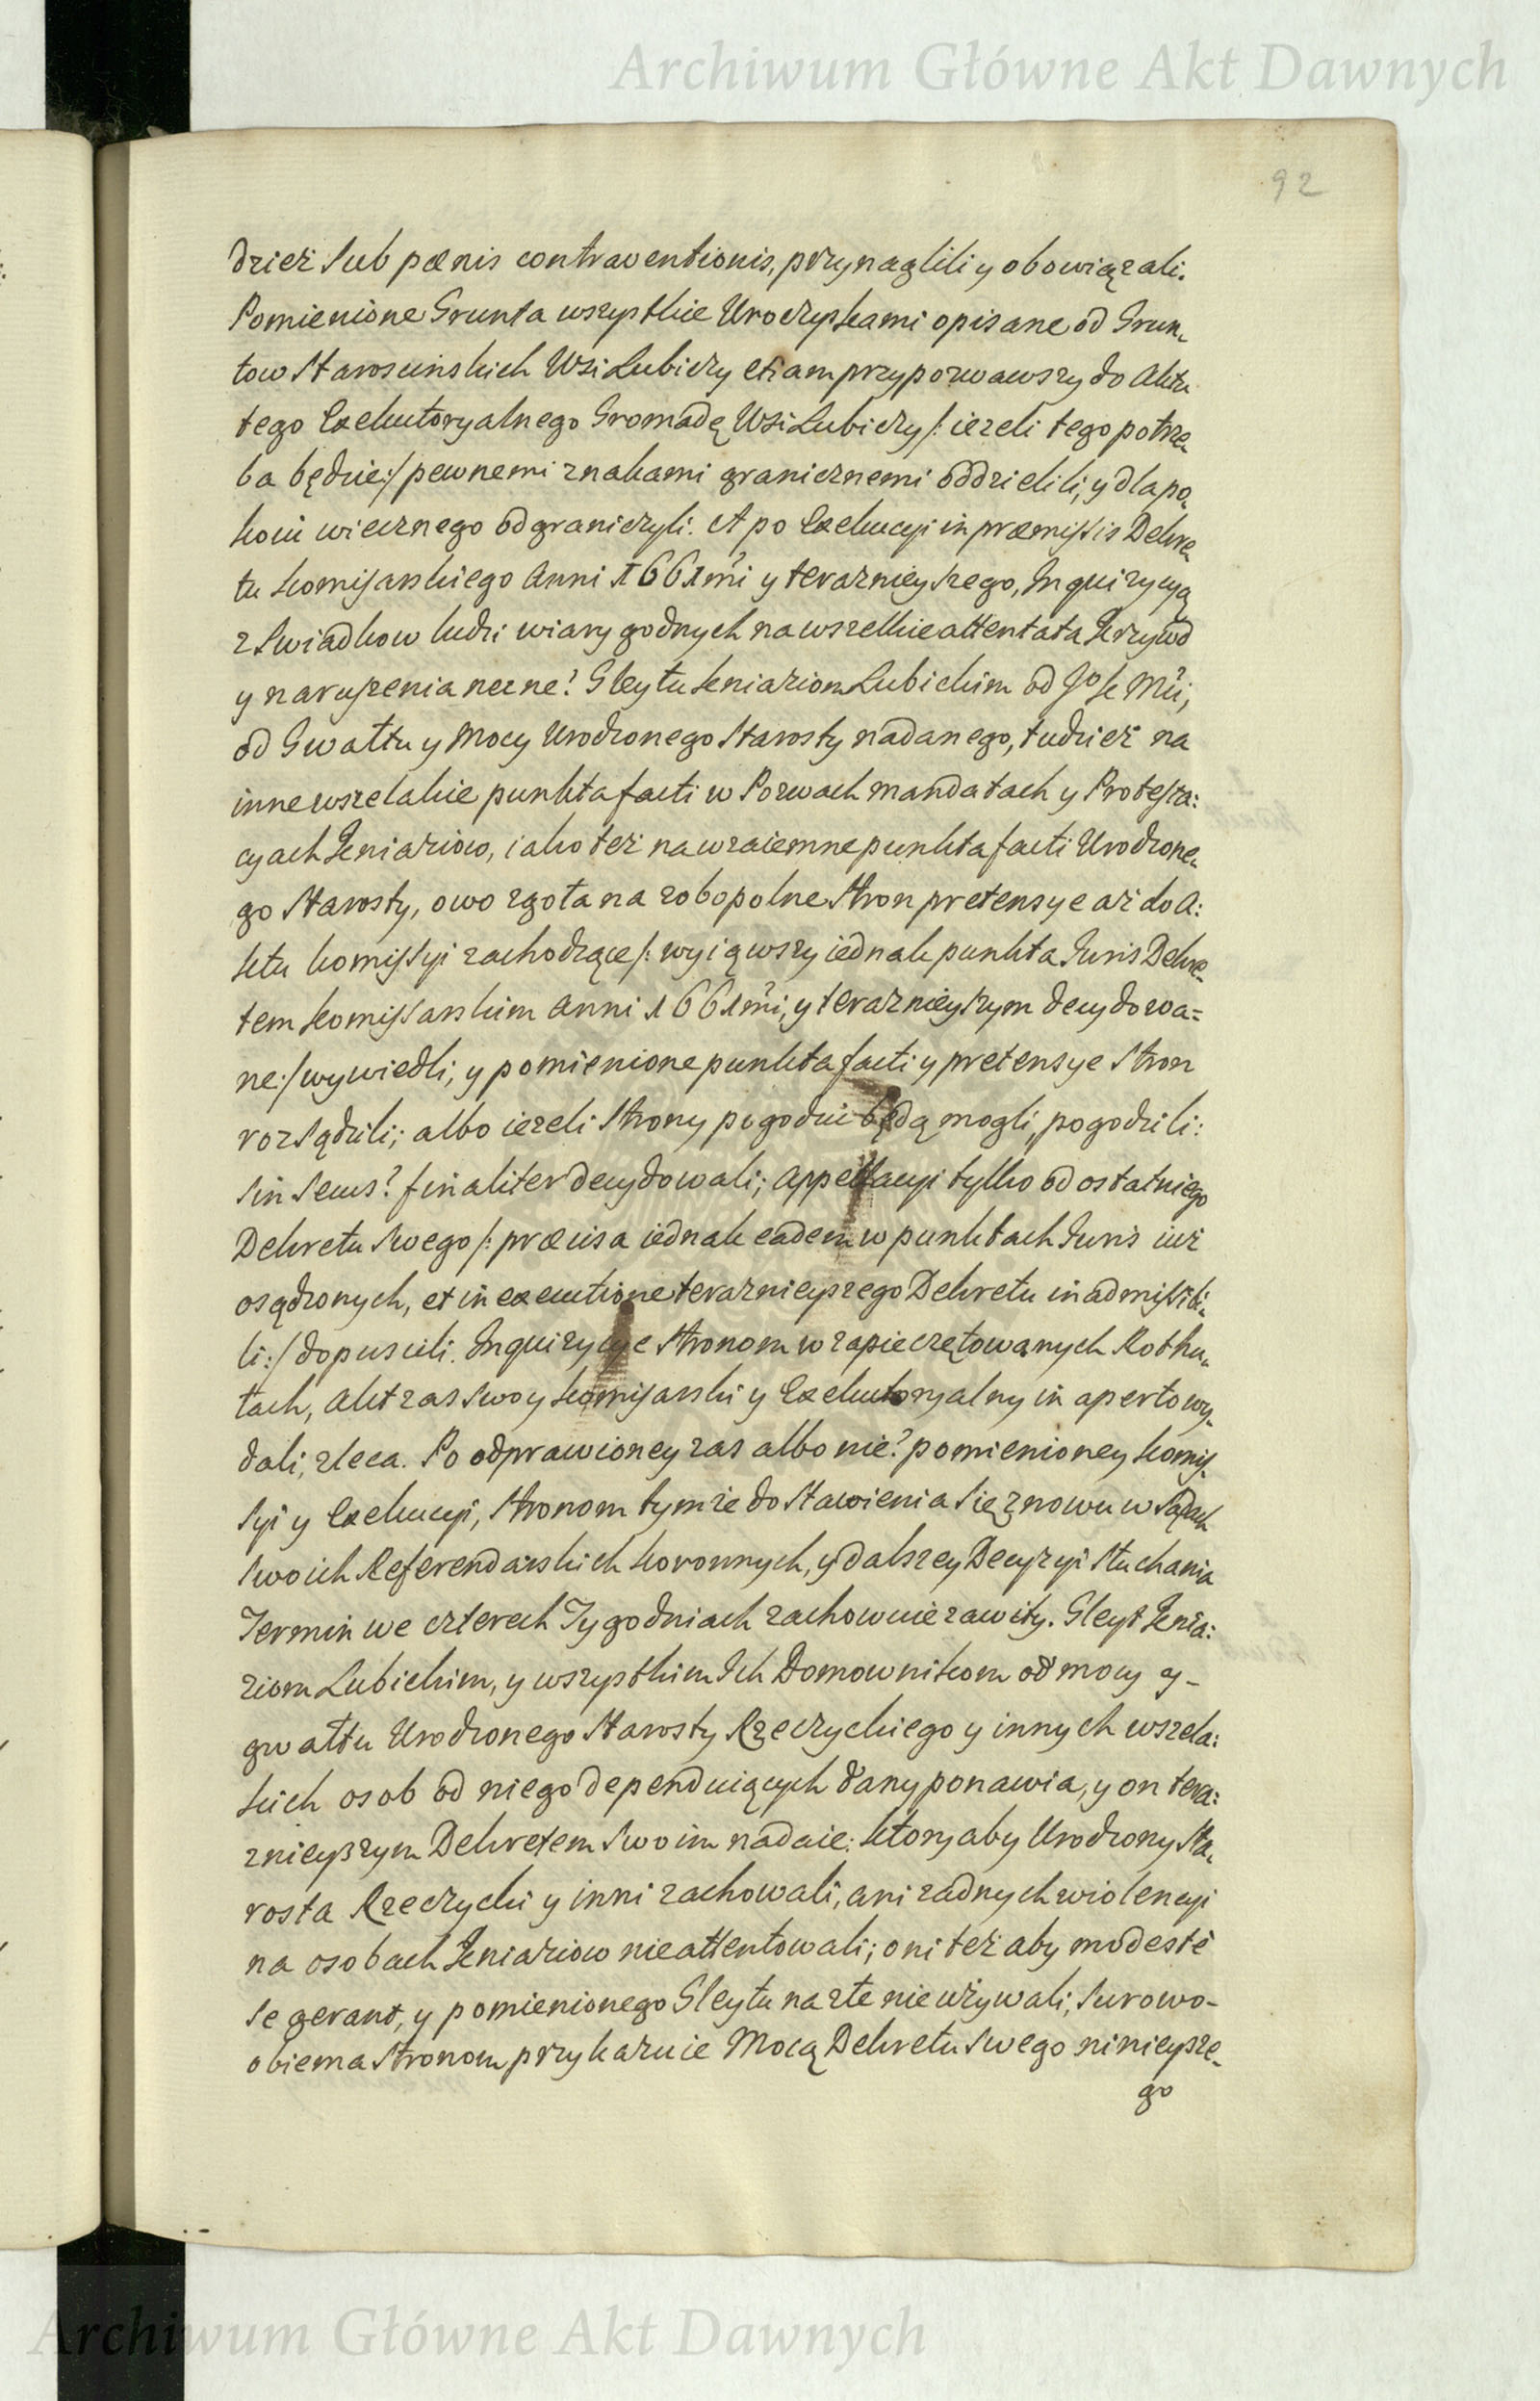 Archiwum Główne Akt Dawnych
92
dzież sub pœnis contraventionis, przynaglili y obowiązali.
Pomienione Grunta wszystkie Uroczyskami opisane od Grun-
tow Staroscinskich Wsi Lubiczy etiam przypozwawszy do Aktu
tego Exekutoryalnego Gromadę Wsi Lubiczy /: iezeli tego potrze-
ba będzie :/ pewnemi znakami granicznemi oddzielili, y dla po-
koiu wiecznego odgraniczyli. A po Exekucyi in præmissis Dekre-
tu Komisarskiego Anni 1661mi y teraznieyszego, Inquizycyą
z Swiadkow ludzi wiary godnych na wszelkie attentata Krzywd
y naruszenia necne? Gleytu Kniaziom Lubickim od Jo K Mci,
od Gwałtu y Mocy Urodzonego Starosty nadanego, tudzież na
inne wszelakie punkta facti w Pozwach mandatach y Protesta:
cyach Kniaziow, iako też na wzaiemne punkta facti Urodzone-
go Starosty, owo zgoła na zobopolne Stron pretensye aż do A:
ktu Komissyi zachodzące /: wyiąwszy iednak punkta Juris Dekre-
tem Komissarskim Anni 1661mi, y teraznieyszym decydowa=
ne :/ wywiedli, y pomienione punkta facti y pretensye Stron
rozsądzili; albo iezeli Strony pogodzić będą mogli, pogodzili:
sin secus? finaliter decydowali; Appellacyi tylko od ostatniego
Dekretu Swego /: præcisa iednak eadem w punktach Juris iuż
osądzonych, et in executione teraznieyszego Dekretu inadmissibi-
li :/ dopuscili. Inquizycye Stronom w zapieczętowanych Rothu-
łach, Akt zas Swoy Komisarski y Exekutoryalny in aperto wy-
dali, zleca. Po odprawioney zas albo nie? pomienioney Komis-
syi y Exekucyi, Stronom tymże do Stawienia się znowu w Sądach
Swoich Referendarskich Koronnych, y dalszey Decyzyi Słuchania
Termin we czterech Tygodniach zachowuie zawity. Gleyt Knia:
ziom Lubickim, y wszystkim Ich Domownikom od mocy y-
gwałtu Urodzonego Starosty Rzeczyckiego y innych wszela:
kich osob od niego dependuiących dany ponawia, y on tera:
znieyszym Dekretem Swoim nadaie: ktory aby Urodzony Sta-
rosta Rzeczycki y inni zachowali, ani zadnych wiolencyi
na osobach Kniaziow nieattentowali; oni też aby modestè
se gerant, y pomienionego Gleytu na złe nie używali, Surowo-
obiema Stronom przykazuie Mocą Dekretu Swego ninieysze-
go
Archiwum Główne Akt Dawnych